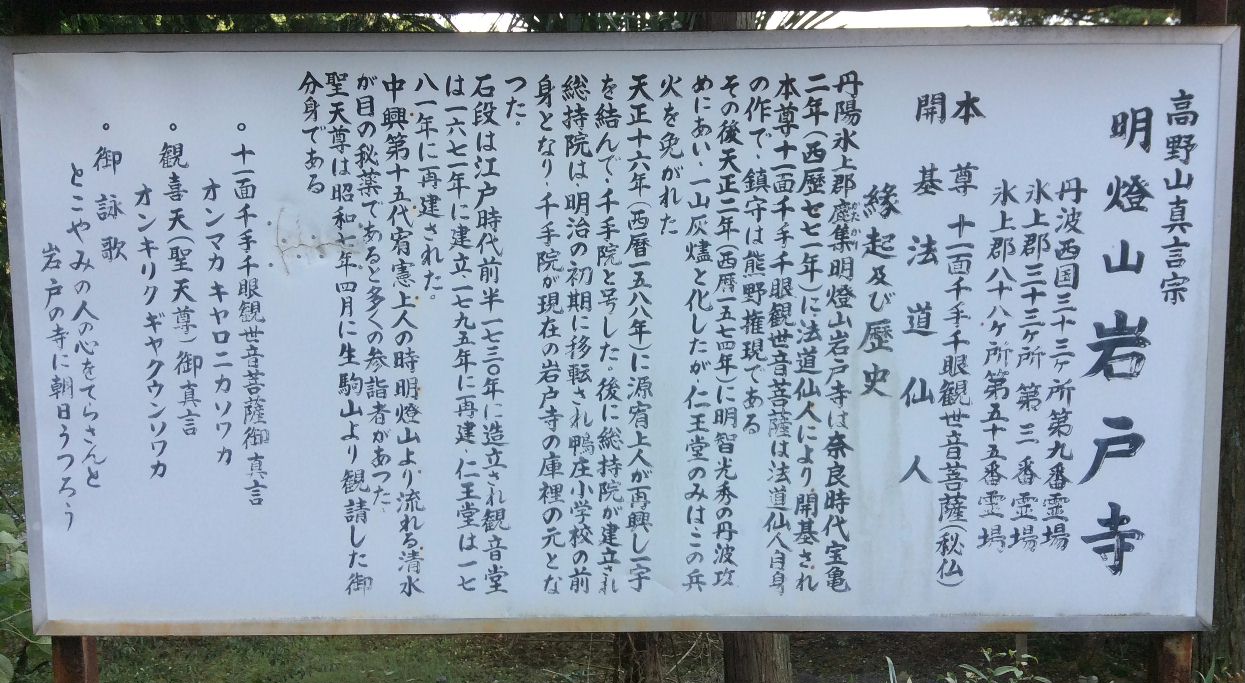 高野山真言宗
明燈山岩戸寺
丹波西国三十三ヶ所第九番霊場
氷上郡三十三ヶ所第三番霊場
氷上郡八十八ヶ所第五十五番霊場
本尊 十一面千手千眼観世音菩薩(秘仏)
開基法道仙人
縁起及び歴史
丹陽氷上郡塵集明燈山岩戸寺は奈良時代宝亀
二年(西歴七七一年)に法道仙人により開基され
本尊十一面千手千眼観世音菩薩は法道仙人自身
の作で、鎮守は熊野権現である
その後天正二年(西暦一五七四年)に明智光秀の丹波攻
めにあい、一山灰燼と化したが、仁王堂のみは、この兵
火を免がれた
天正十六年(西暦一五八八年)に源宥上人が再興し一宇
を結んで、千手院と号した。後に総持院が建立され
総持院は、明治の初期に移転され鴨庄小学校の前
身となり、千手院が現在の岩戸寺の庫裡の元とな
つた。
石段は江戸時代前半一七三〇年に造立され観音堂
は一六七一年に建立一七九五年に再建、仁王堂は一七
八一年に再建された。
中興第十五代宥憲上人の時明燈山より流れる清水
が目の秘薬であると多くの参詣者があつた、
聖天尊は昭和七年四月に生駒山より観請した御
分身である
。十一面千手千眼観世音菩薩御真言
オンマカキャロニカソワカ
。観喜天(聖天尊)御真言
オンキリクギャクウンソワカ
。御詠歌
とこやみの人の心をてらさんと
岩戸の寺に朝日うつろう